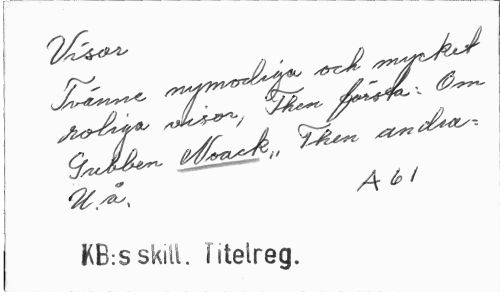 Visor
Tvänne nymodiga och mycket
roliga visor, Then första: Om
Gubben Noack,, Then andra:
U.å.
A 61
KB:s skill. Titelreg.